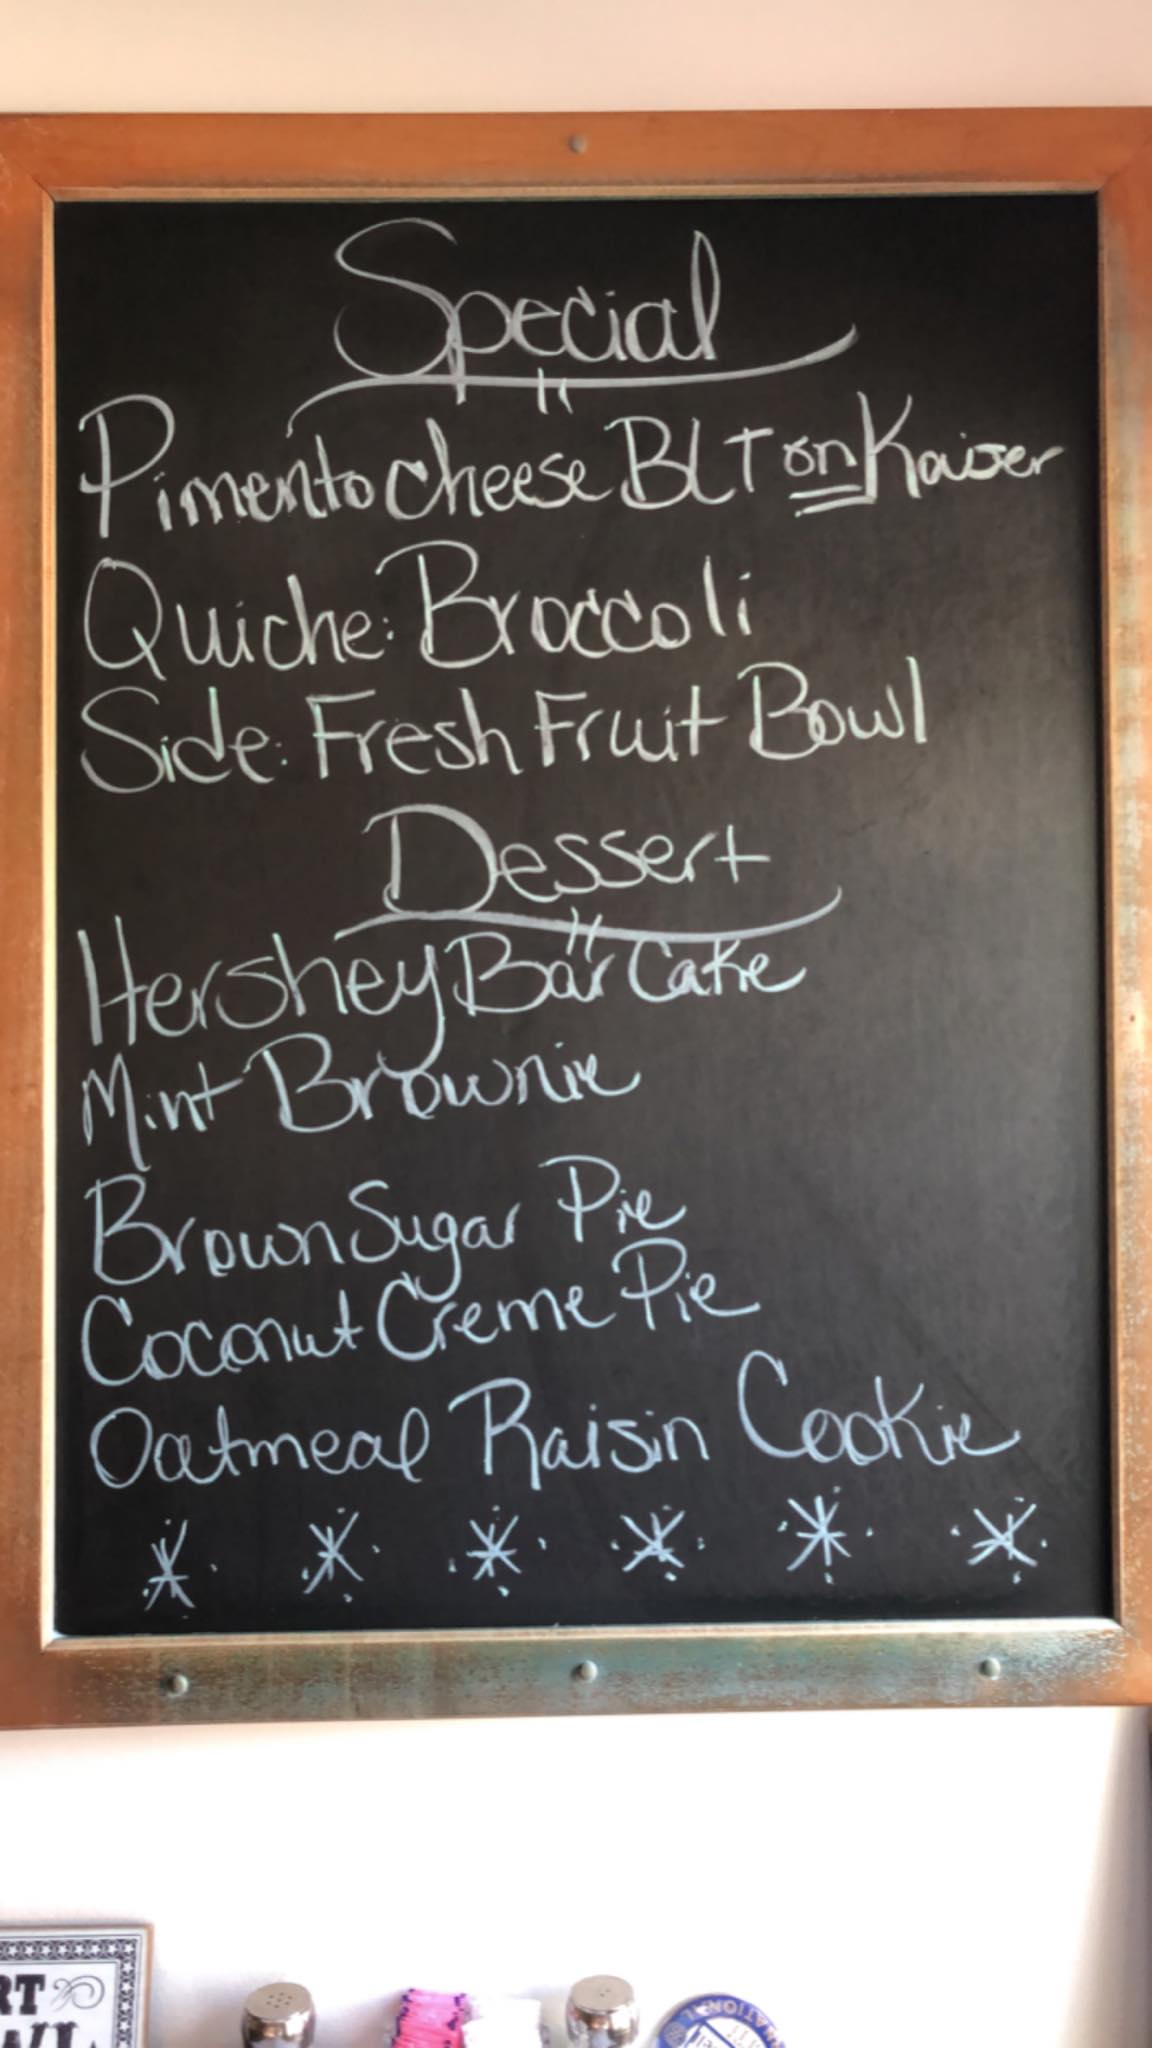 Special
Pimento cheese BLT on Kaiser
Quiche: Broccoli
Side: Fresh Fruit Bowl
Dessert
Hershey Bar Cake
Mint Brownie
Brown Sugar Pie
Coconut Creme Pie
Oatmeal Raisin Cookie
RT